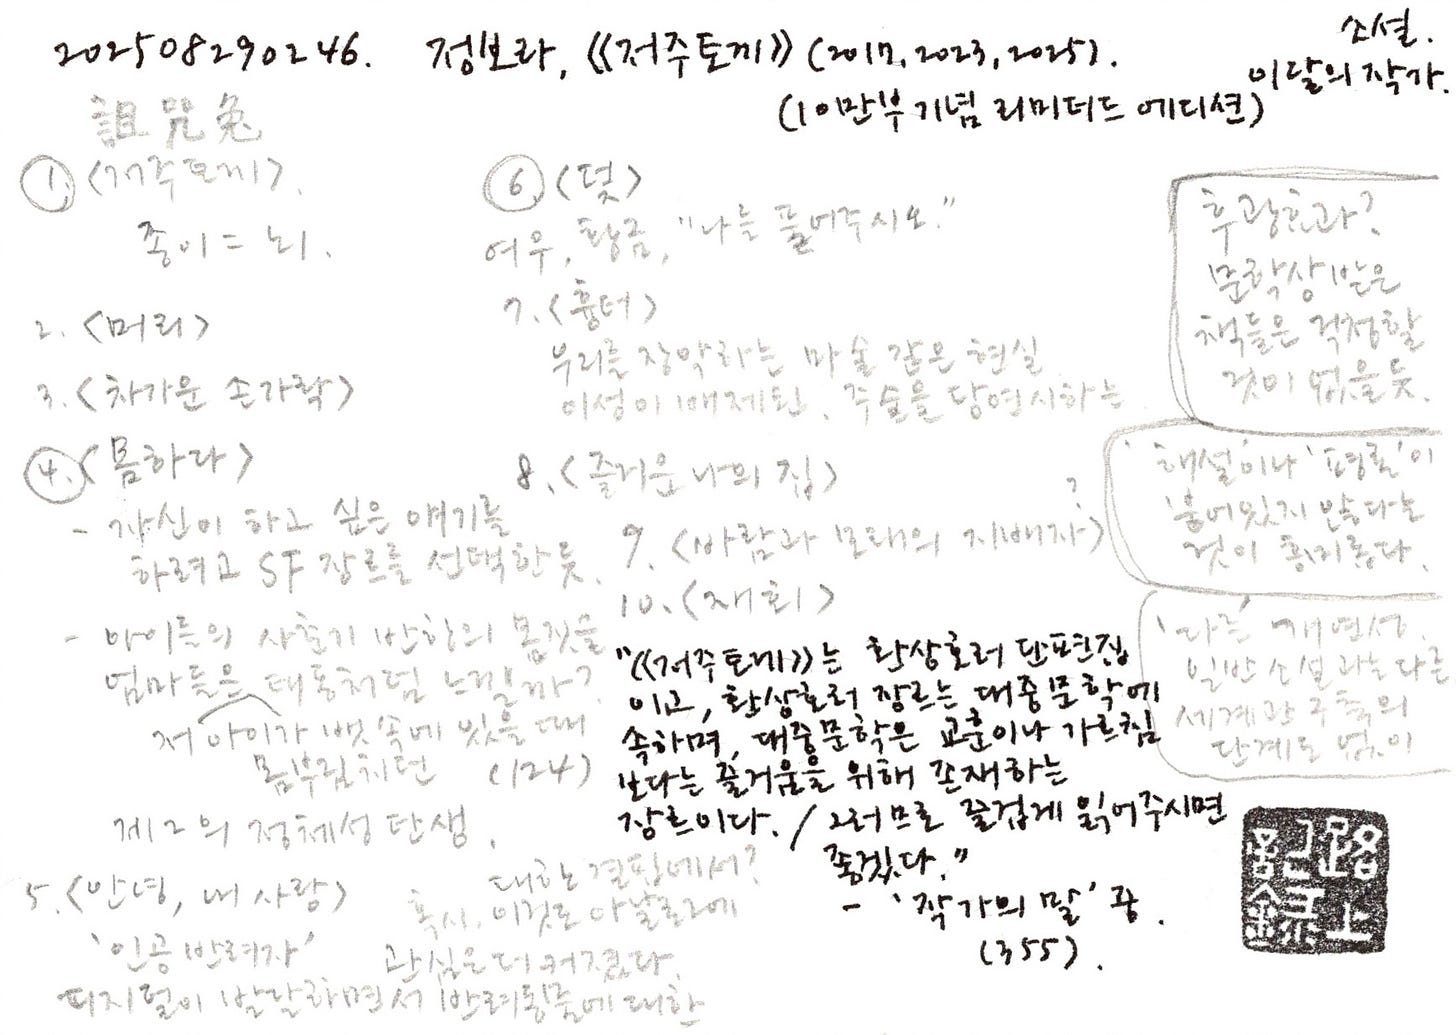 202508290246. 정보라, 《저주토끼》 (2017, 2023, 2025).
(10만부 기념 리미티드 에디션)
소설.
이달의 작가.
詛呪兔
① <저주토끼>.
종이 = 뇌.
2. <머리>
3. <차가운 손가락>
④ <몸하다>
- 자신이 하고 싶은 얘기를
하려고 SF 장르를 선택한 듯.
- 아이들의 사춘기 반항의 몸짓을
엄마들은 태동처럼 느낄까?
저 아이가 뱃속에 있을 때
몸부림치던 (124)
제2의 정체성 탄생.
5. <안녕, 내 사랑>
'인공 반려자'
디지털이 발달하면서 반려동물에 대한
관심은 더 커졌다.
혹시, 이것도 아날로그에
대한 결핍에서?
⑥ <덫>
여우, 황금, "나를 풀어주시오."
7. <흉터>
우리를 장악하는 마술 같은 현실.
이성이 배제된, 주술을 당연시하는
8. <즐거운 나의 집>
9. <바람과 모래의 지배자>
10. <재회>
"《저주토끼》는 환상호러 단편집
이고, 환상호러 장르는 대중문학에
속하며, 대중문학은 교훈이나 가르침
보다는 즐거움을 위해 존재하는
장르이다. / 그러므로 즐겁게 읽어주시면
좋겠다."
- '작가의 말' 중.
(355).
후광효과?
문학상 받은
책들은 걱정할
것이 없을 듯.
?
'해설'이나 '평론'이
붙어있지 않다는
것이 흥미롭다.
'다른' 개연성.
일반 소설과는 다른
세계관 구축의
단계도 없이
路上
記录